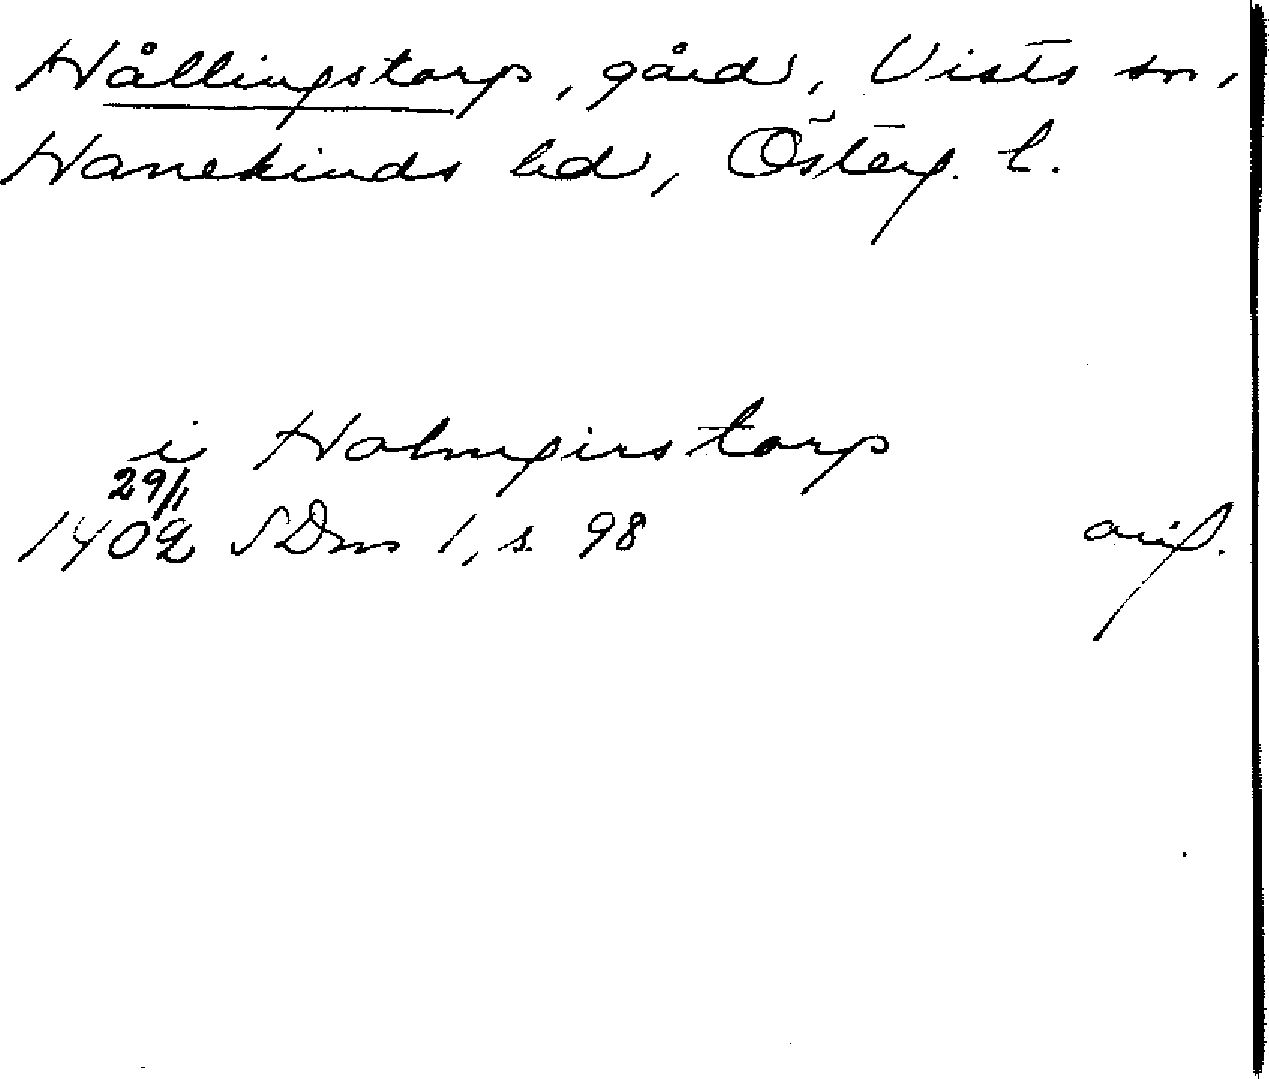 Hållingstorp, gård, Vists sn,
Hanekinds hd, Österg. l.
i Holmgirstorp
29/1
1402 SDns 1, s. 98 orig.